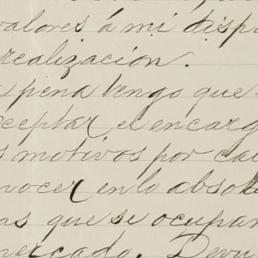 valores á mi disp
realización.
pena tengo que
ceptar el encarg
s motivos por ca
nocer en lo absol
as que se ocupan
mercado. Devu